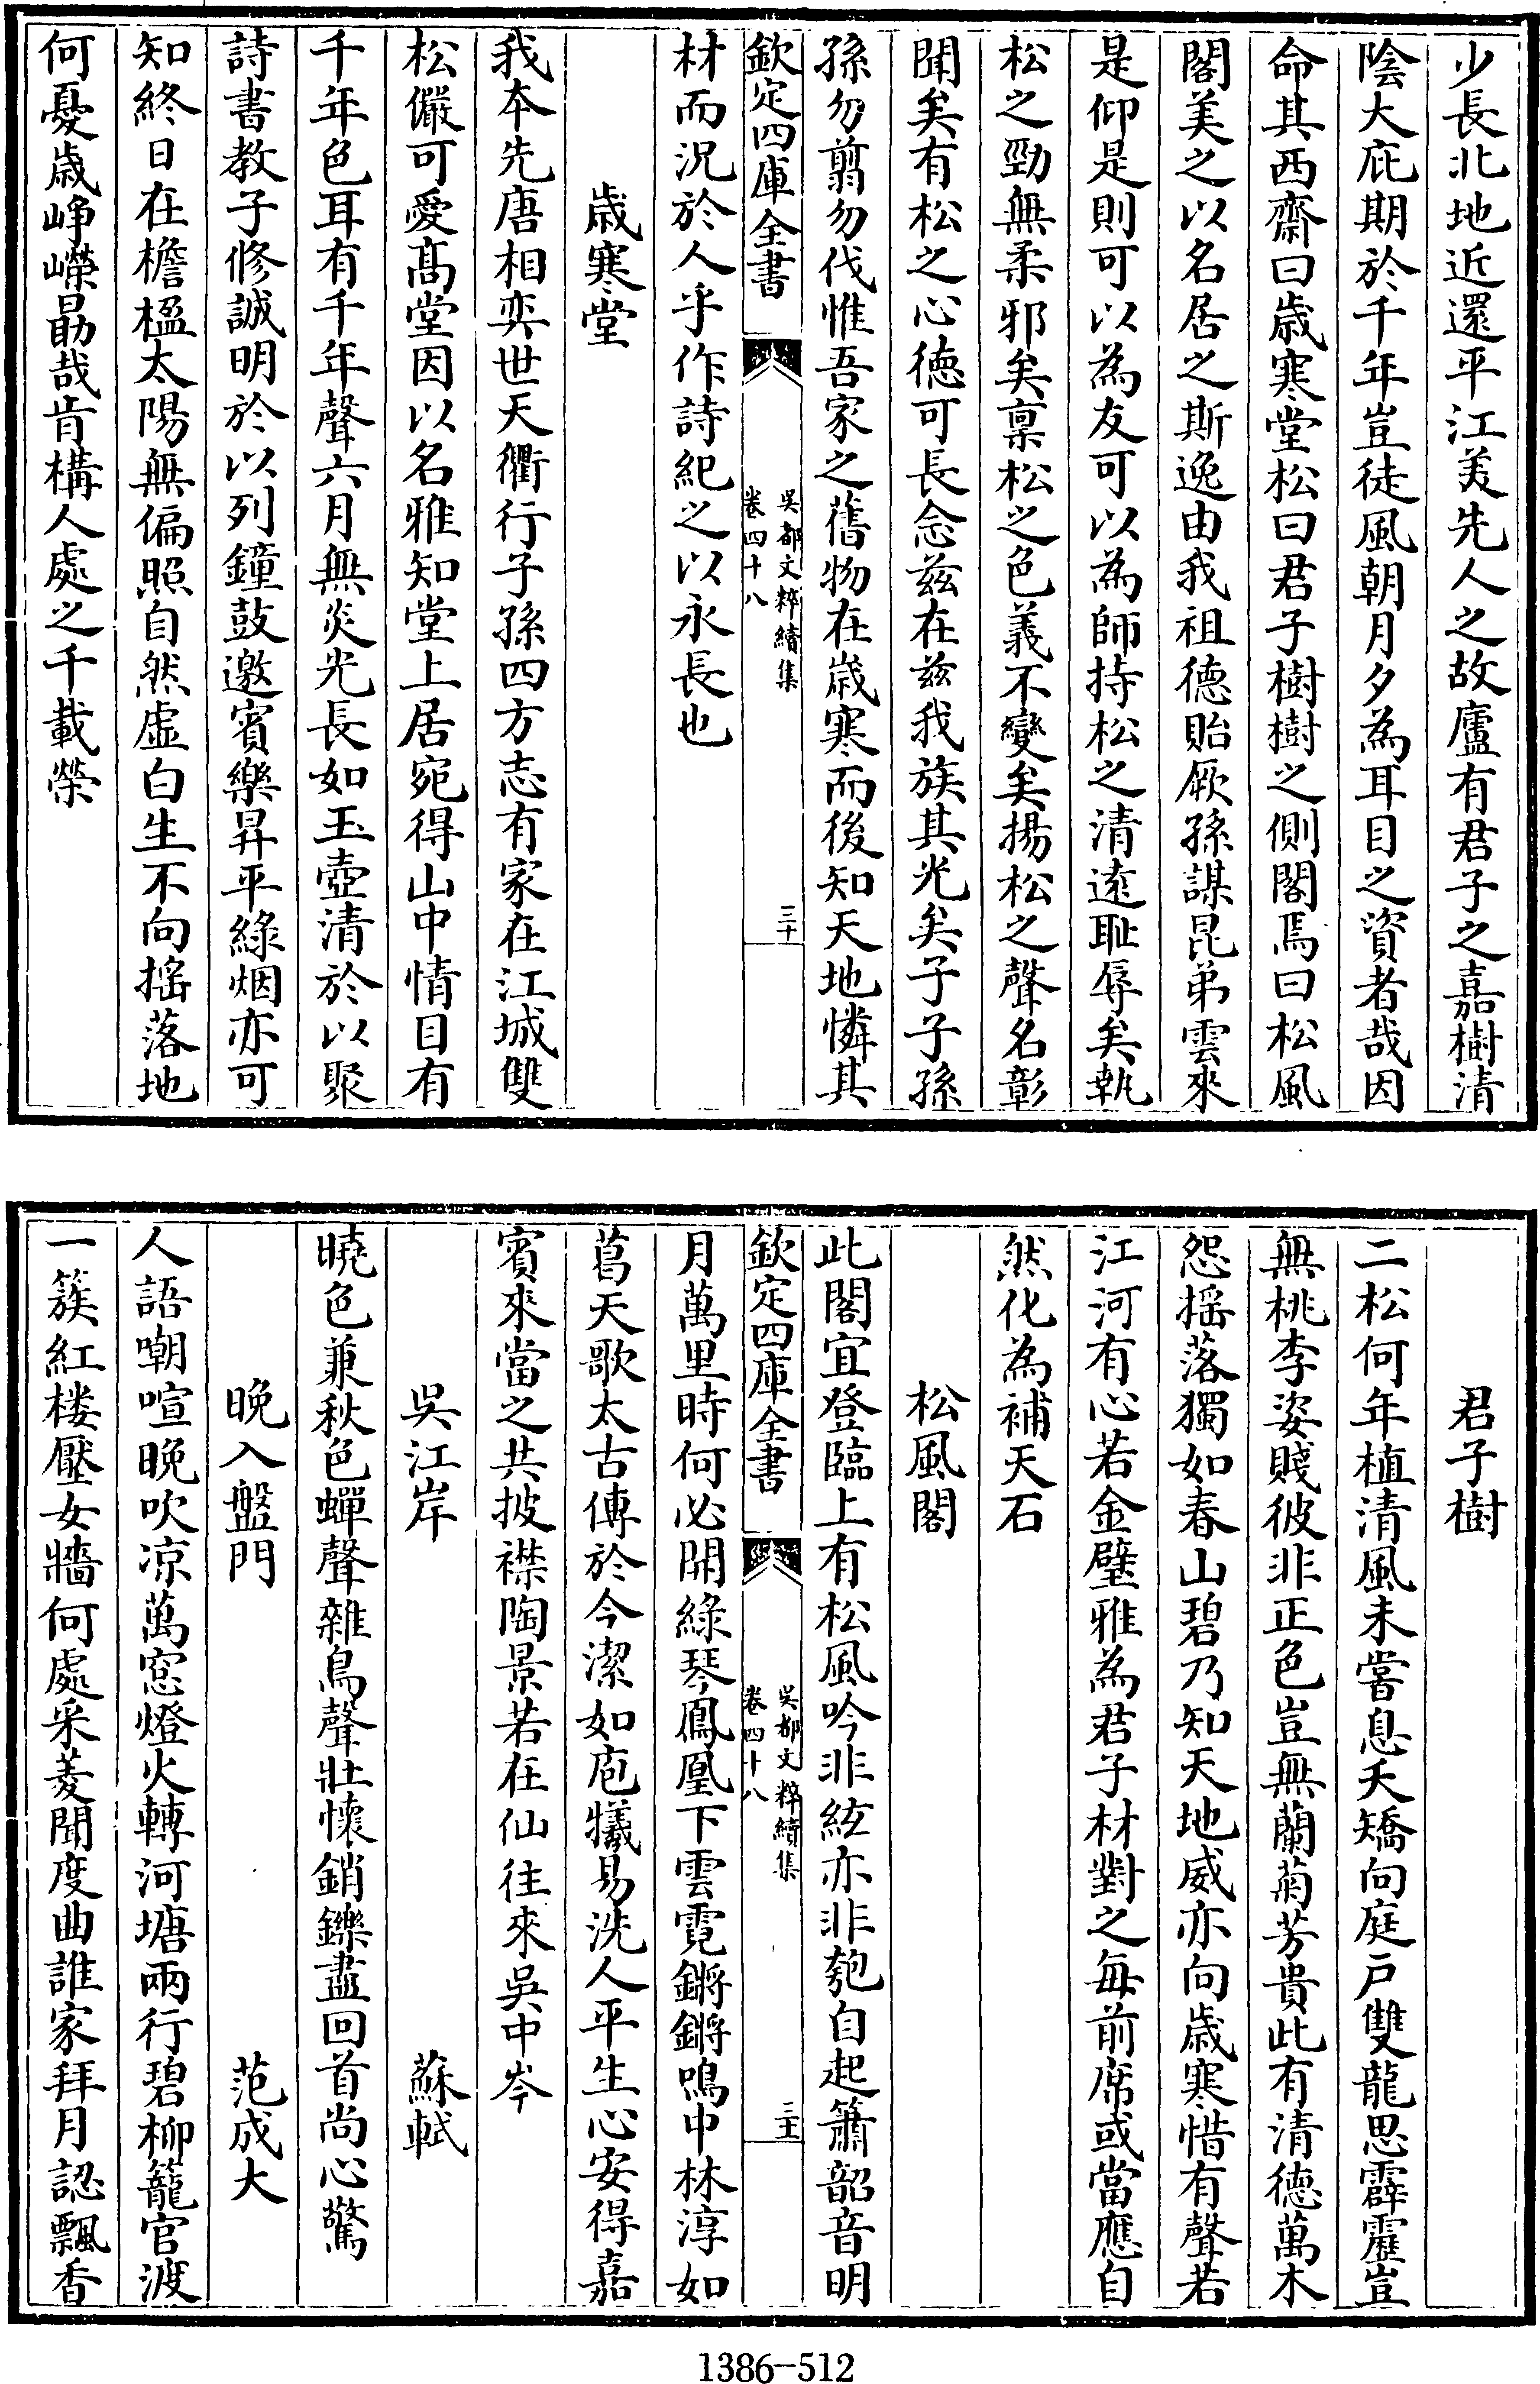 少長北地近還平江美先人之故廬有君子之嘉樹清
陰大庇期於千年豈徒風朝月夕為耳目之資者哉因
命其西齋曰歲寒堂松曰君子樹樹之側閣焉曰松風
閣美之以名居之斯逸由我祖德貽厥孫謀昆弟雲來
是仰是則可以為友可以為師持松之清逺耻辱矣執
松之勁無柔邪矣禀松之色義不變矣揚松之聲名彰
聞矣有松之心德可長念兹在兹我族其光矣子子孫
孫勿翦勿伐惟吾家之舊物在歲寒而後知天地憐其
欽定四庫全書
吳都文粹續集
卷四十八
三十
材而況於人乎作詩紀之以永長也
歲寒堂
我本先唐相奕世天衢行子孫四方志有家在江城雙
松儼可愛髙堂因以名雅知堂上居宛得山中情目有
千年色耳有千年聲六月無炎光長如玉壺清於以聚
詩書教子修誠明於以列鐘鼓邀賓樂昇平綠烟亦可
知終日在檐楹太陽無偏照自然虛白生不向揺落地
何憂歲崢嶸勗哉肯構人處之千載榮
君子樹
二松何年植清風未嘗息夭矯向庭戶雙龍思霹靂豈
無桃李姿賤彼非正色豈無蘭菊芳貴此有清德萬木
怨揺落獨如春山碧乃知天地威亦向歲寒惜有聲若
江河有心若金璧雅為君子材對之每前席或當應自
然化為補天石
松風閣
此閣宜登臨上有松風吟非絃亦非匏自起簫韶音明
欽定四庫全書
吳都文粹續集
卷四十八
三十一
月萬里時何必開綠琴鳳凰下雲霓鏘鏘鳴中林淳如
葛天歌太古傳於今潔如庖犧易洗人平生心安得嘉
賓來當之共披襟陶景若在仙往來吳中岑
吳江岸
蘇軾
曉色兼秋色蟬聲雜鳥聲壯懷銷鑠盡回首尚心驚
晚入盤門
范成大
人語嘲喧晚吹凉萬窓燈火轉河塘兩行碧柳籠官渡
一簇紅楼壓女牆何處采菱聞度曲誰家拜月認飄香
1386-512